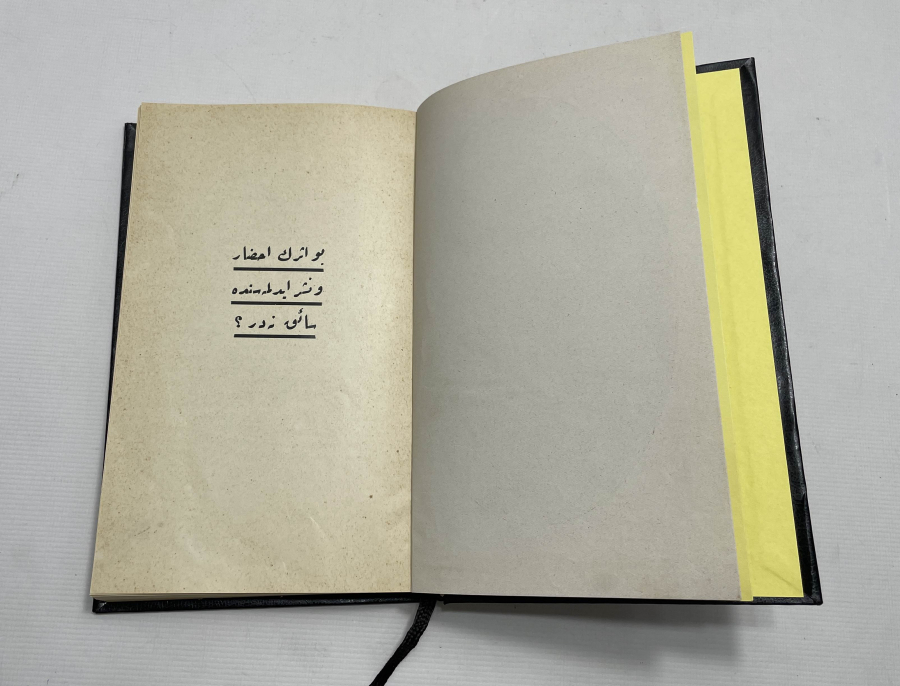 بو اثرك احضار
ونشر ایدلمه‌سنده
سائق نه‌در ؟